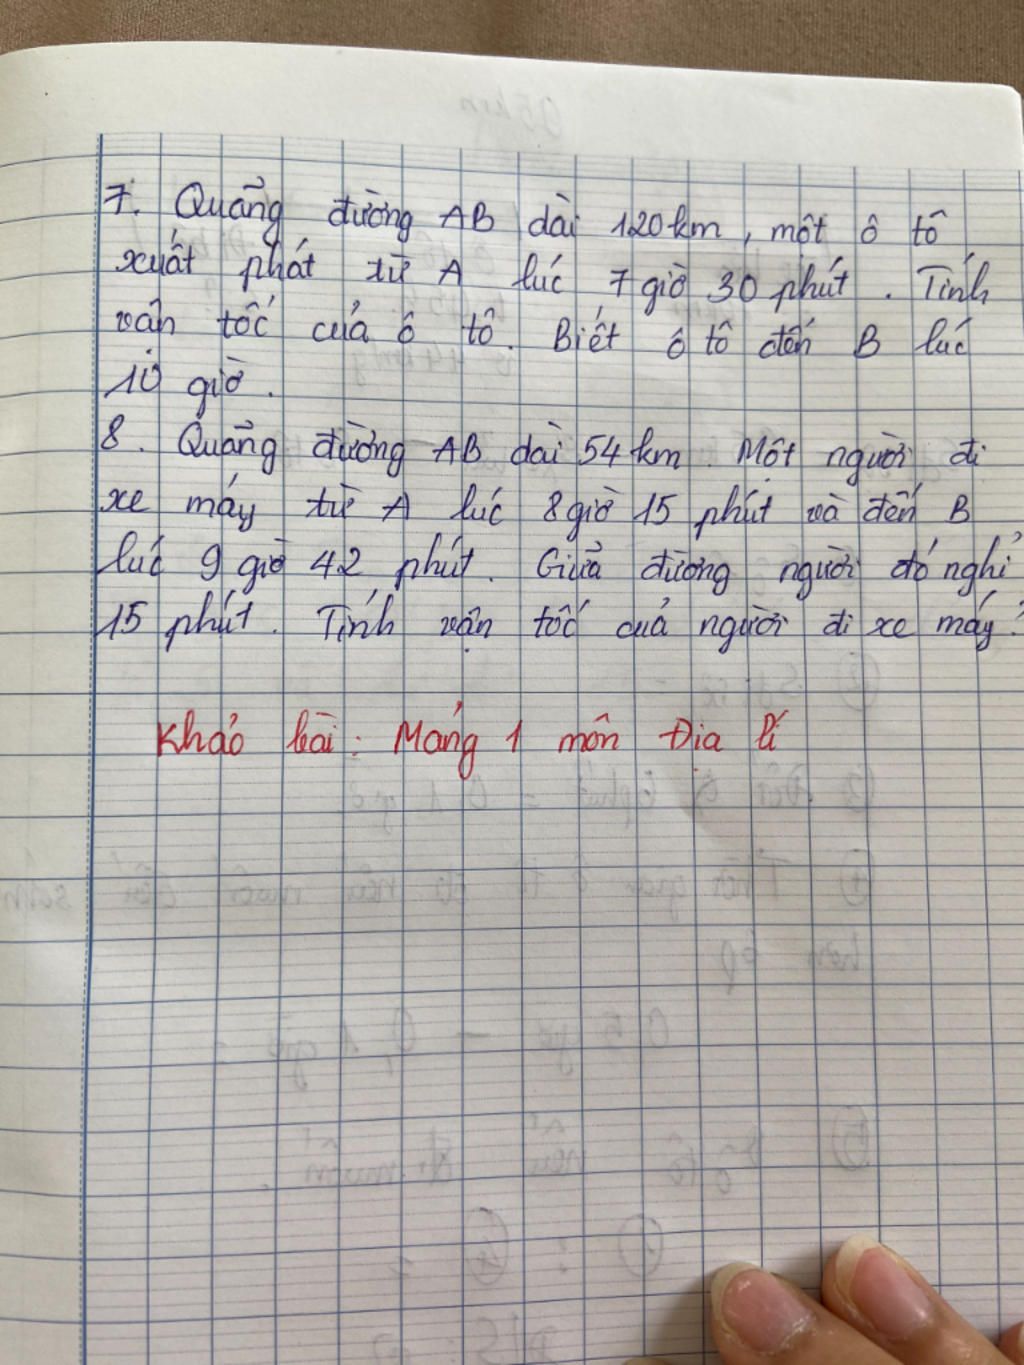 7. Quãng đường AB dài 120km, một ô tô
xuất phát từ A lúc 7 giờ 30 phút. Tính
vận tốc của ô tô. Biết ô tô đến B lúc
10 giờ.
8. Quãng đường AB dài 54 km. Một người đi
xe máy từ A lúc 8 giờ 15 phút và đến B
lúc 9 giờ 42 phút. Giữa đường người đó nghỉ
15 phút. Tính vận tốc của người đi xe máy?
Khảo bài: Mảng 1 môn Địa lí